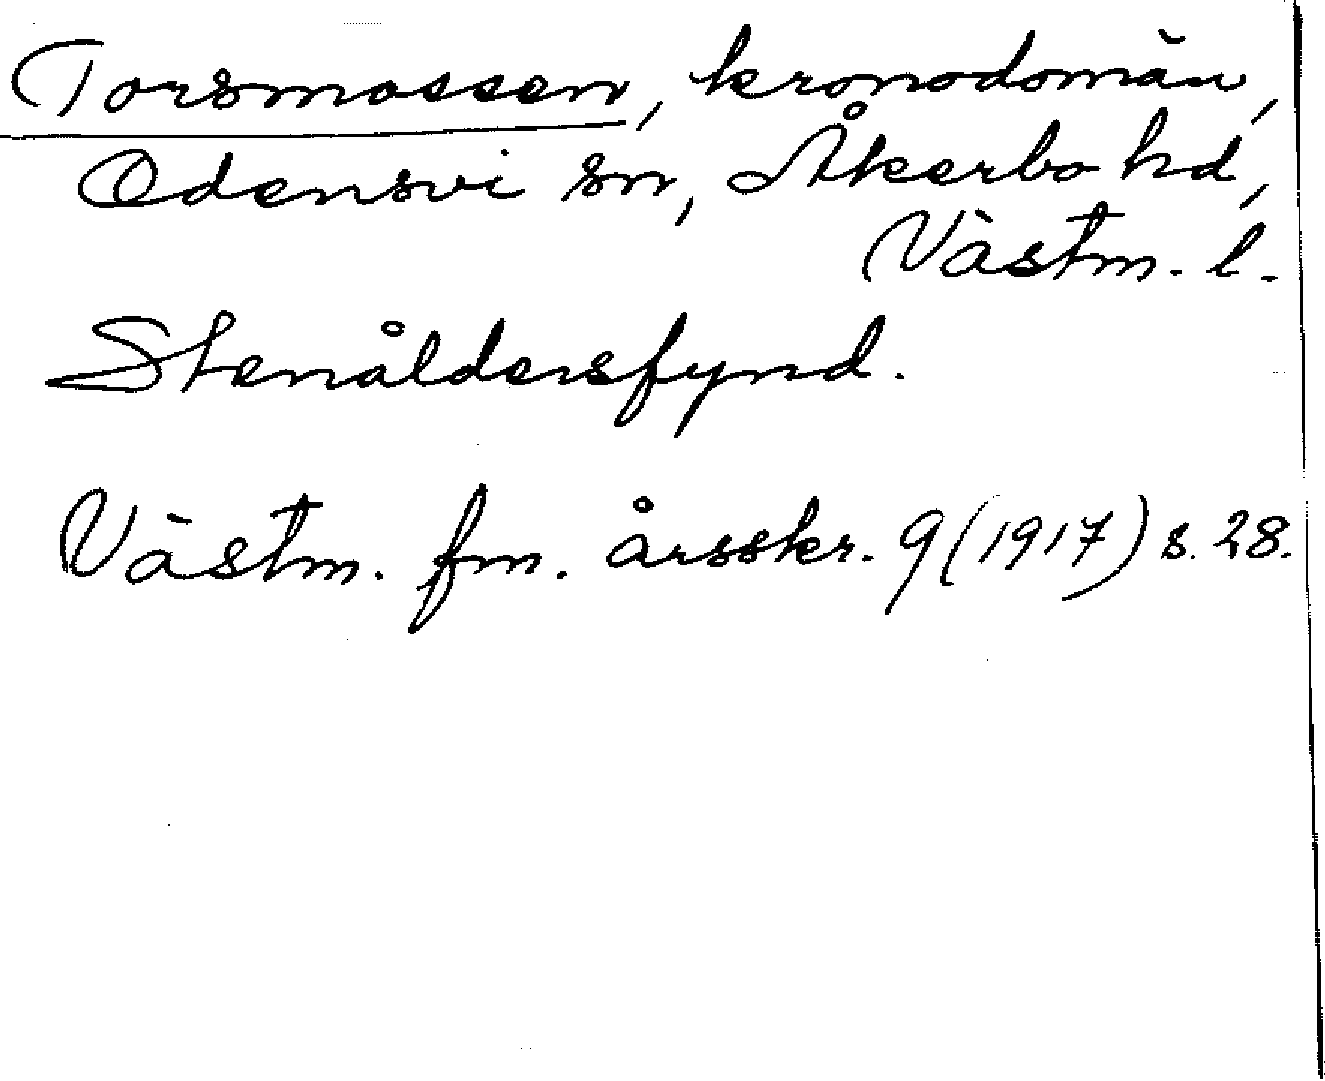 Torsmossen, kronodomän,
Odensvi sn, Åkerbo hd,
Västm. l.
Stenåldersfynd.
Västm. fm. årsskr. 9 (1917) s. 28.